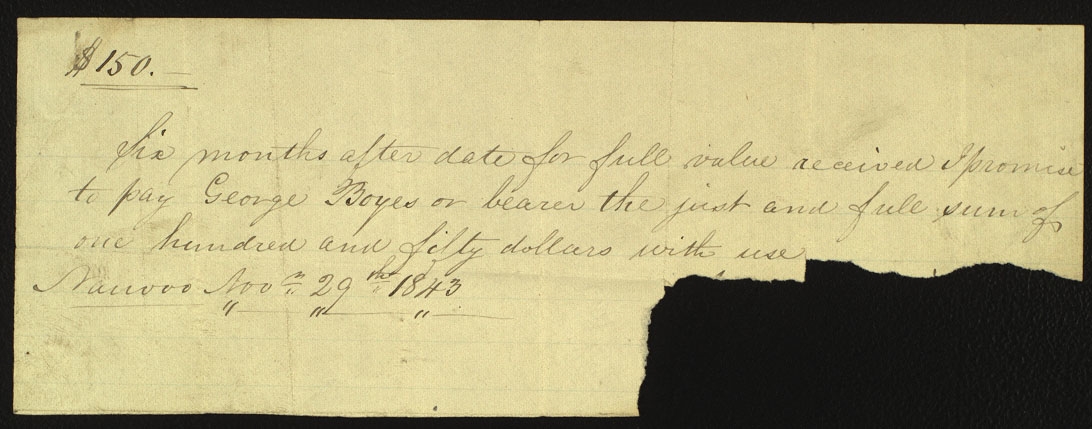 $150.—
Six months after date for full value received I promise
to pay George Boyes or bearer the just and full sum of
one hundred and fifty dollars with use
Nauvoo Nov.r 29th 1843